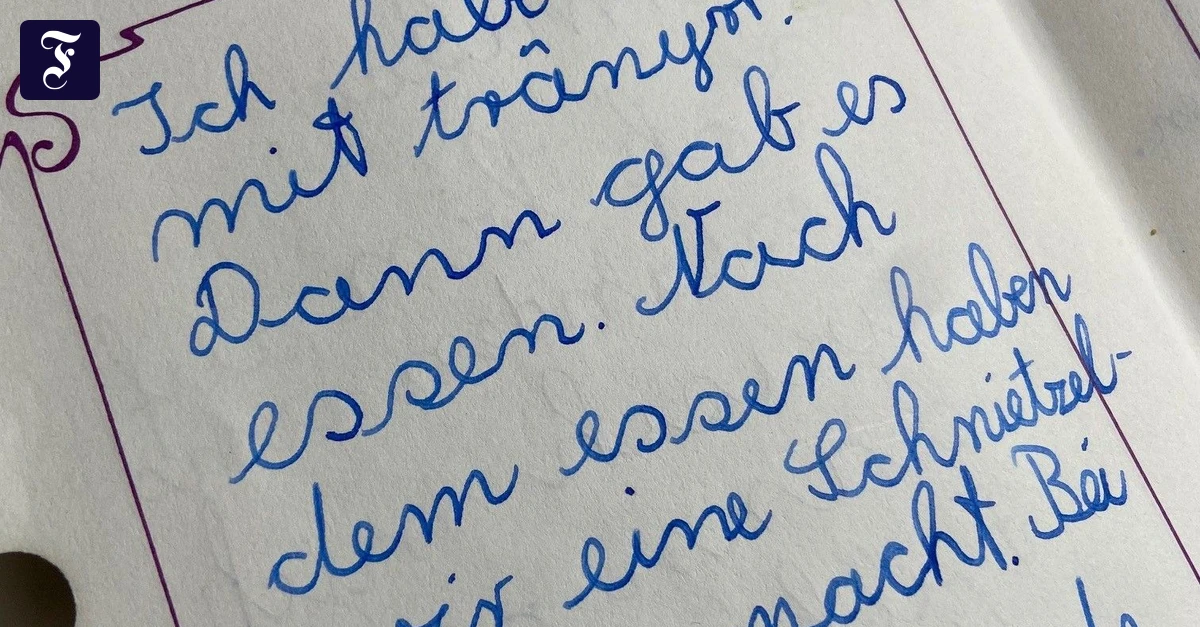 F
Ich
mit
Dann gab es
essen. Nach
dem essen haben
wir eine Schnietzel-
macht. Bei